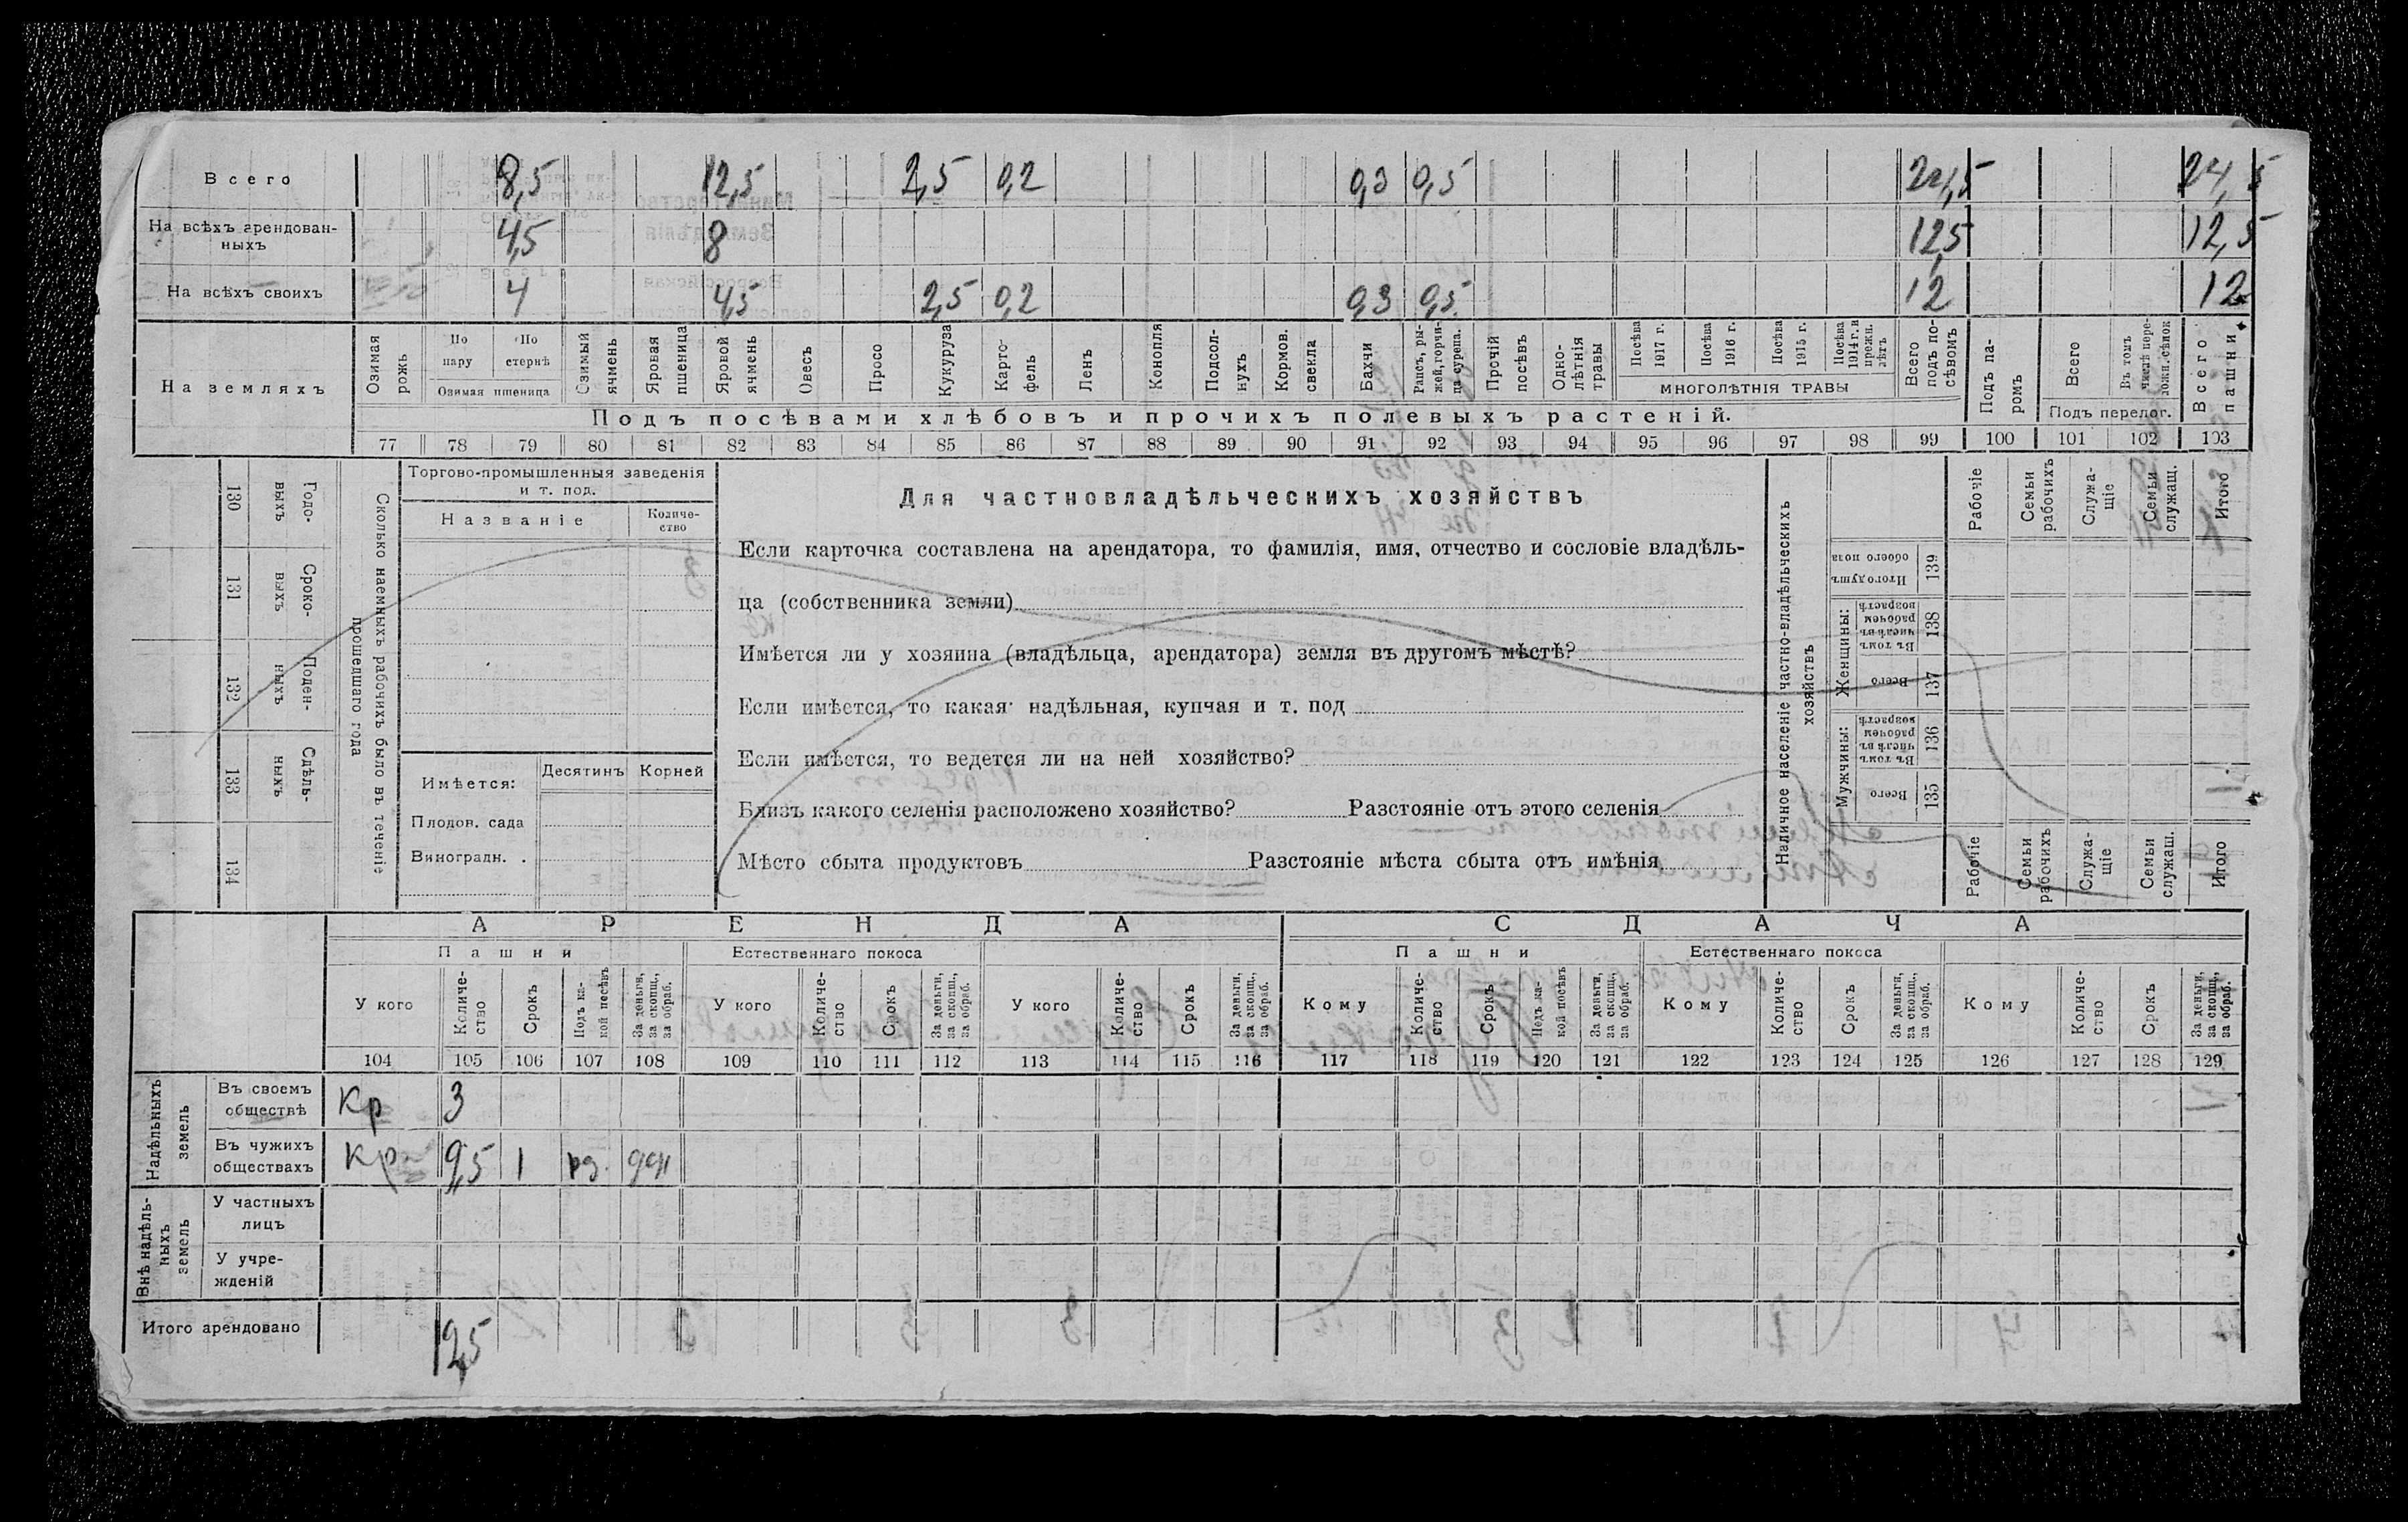 Всего 8,5 12,5 2,5 0,2 0,3 0,5 24,5 24,5
На всѣхъ арендован-
ныхъ 4,5 8 12,5 12,5
На всѣхъ своихъ 4 4,5 2,5 0,2 0,3 0,5 12 12
На земляхъ
Озимая рожь
По пару
По стернѣ
Озимая пшеница
Озимый ячмень
Яровая пшеница
Яровой ячмень
Овесъ
Просо
Кукуруза
Карто-
фель
Ленъ
Конопля
Подсол-
нухъ
Кормов. свекла
Бахчи
Рапсъ, ры-
жей, горчи-
ца сурепа.
Прочій посѣвъ
Одно-
лѣтнія травы
Посѣва 1917 г.
Посѣва 1916 г.
Посѣва 1915 г.
Посѣва 1914 г. и прежн. лѣтъ
МНОГОЛѢТНІЯ ТРАВЫ
Всего подъ по-
сѣвомъ
Подъ па-
ромъ
Всего
Въ томъ числѣ пере-
ложн. сѣнок
Подъ перелог.
Всего пашни
Подъ посѣвами хлѣбовъ и прочихъ полевыхъ растеній.
77 78 79 80 81 82 83 84 85 86 87 88 89 90 91 92 93 94 95 96 97 98 99 100 101 102 103
Сколько наемныхъ рабочихъ было въ теченіе
прошедшаго года
Годо-
выхъ
130
Сроко-
выхъ
131
Поден-
ныхъ
132
Сдѣль-
ныхъ
133
134
Торгово-промышленныя заведенія
и т. под.
Названіе
Количе-
ство
Имѣется:
Десятинъ Корней
Плодов. сада
Виноградн. .
Для частновладѣльческихъ хозяйствъ
Если карточка составлена на арендатора, то фамилія, имя, отчество и сословіе владѣль-
ца (собственника земли)
Имѣется ли у хозяина (владѣльца, арендатора) земля въ другомъ мѣстѣ?
Если имѣется, то какая надѣльная, купчая и т. под
Если имѣется, то ведется ли на ней хозяйство?
Близъ какого селенія расположено хозяйство? Разстояніе отъ этого селенія
Мѣсто сбыта продуктовъ Разстояніе мѣста сбыта отъ имѣнія
Наличное населеніе частно-владѣльческихъ
хозяйствъ
Рабочіе
Семьи рабочихъ
Служа-
щіе
Семьи служащ.
Итого
Итого душъ обоего пола
139
Женщины:
Въ томъ числѣ въ рабочемъ возрастѣ
138
Всего
137
Мужчины:
Въ томъ числѣ въ рабочем возрастѣ
136
Всего
135
Рабочіе
Семьи рабочихъ
Служа-
щіе
Семьи служащ.
Итого
АРЕНДА СДАЧА
Пашни Естественнаго покоса Пашни Естественнаго покоса
У кого
Количе-
ство
Срокъ
Подъ ка-
кой посѣвъ
За деньги, за скопщ., за обраб.
У кого
Количе-
ство
Срокъ
За деньги, за скопщ., за обраб.
У кого
Количе-
ство
Срокъ
За деньги, за скопщ., за обраб.
Кому
Количе-
ство
Срокъ
Подъ ка-
кой посѣвъ
За деньги, за скопщ., за обраб.
Кому
Количе-
ство
Срокъ
За деньги, за скопщ., за обраб.
Кому
Количе-
ство
Срокъ
За деньги, за скопщ., за обраб.
104 105 106 107 108 109 110 111 112 113 114 115 116 117 118 119 120 121 122 123 124 125 126 127 128 129
Надѣльныхъ
земель
Въ своемъ
обществѣ Кр 3
Въ чужихъ
обществахъ Кр 9,5 1
Внѣ надѣль-
ныхъ
земель
У частныхъ
лицъ
У учре-
жденій
Итого арендовано 12,5